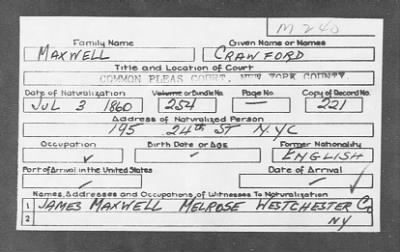 M240
Family Name Given Name or Names
MAXWELL CRAWFORD
Title and Location of Court
COMMON PLEAS COURT, NEW YORK COUNTY
Date of Naturalization Volume or Bundle No. Page No. Copy of Record No.
JUL 3 1860 254 — 221
Address of Naturalized Person
195 24TH ST NYC
Occupation Birth Date or Age Former Nationality
ENGLISH
Port of Arrival in the United States Date of Arrival
Names, Addresses and Occupations of Witnesses To Naturalization
1 JAMES MAXWELL MELROSE WESTCHESTER CO.
2 NY